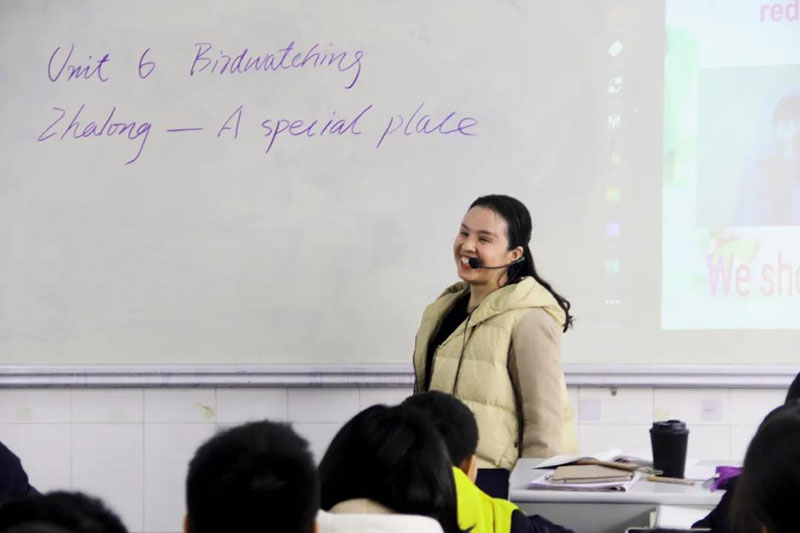 Unit 6 Birdwatching
Zhalong — A special place
red
We sho